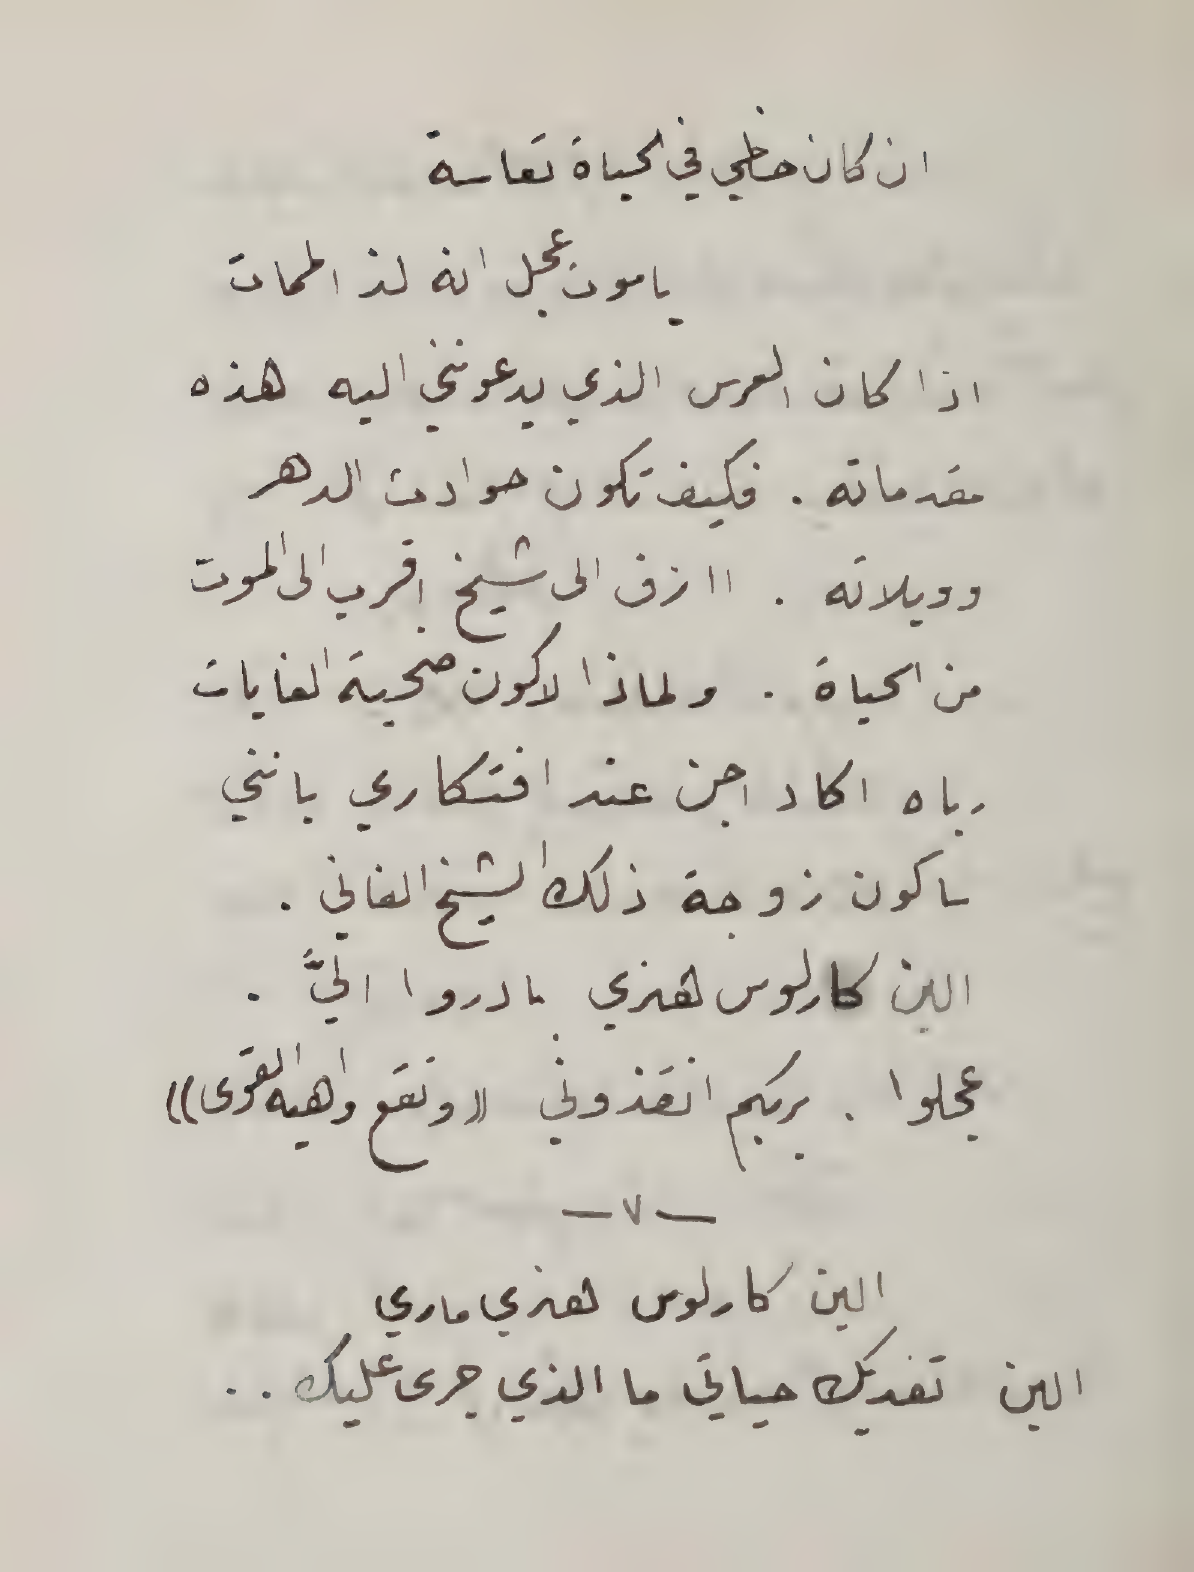 ان كان حظي في الحياة تعاسة
يا موت عجل انه لذ الممات
اذا كان العرس الذي يدعونني اليه هذه
مقدماته . فكيف تكون حوادث الدهر
وويلاته . اازف الى شيخ اقرب الى الموت
من الحياة . ولماذا لاكون ضحية الغايات
رباه اكاد اجن عند افتكاري بانني
ساكون زوجة ذلك الشيخ الفاني .
الين كارلوس هنري بادروا اليَّ .
عجلوا . بربكم انقذوني ((وتقع واهية القوى))
— ٧ —
الين كارلوس هنري ماري
الين تفديك حياتي ما الذي جرى عليك . .